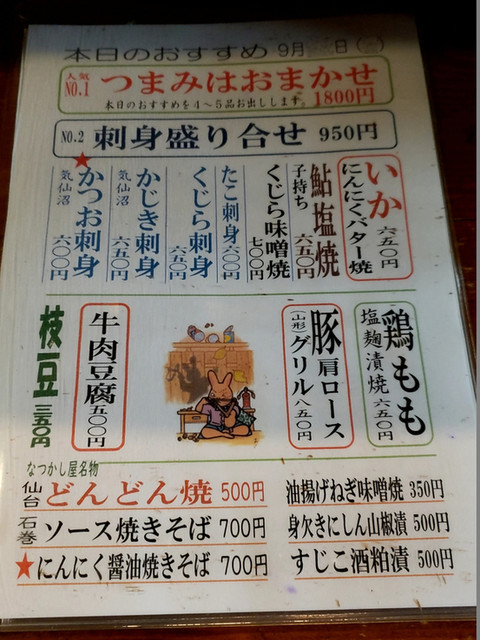 本日のおすすめ 9月 日
人気
NO.1 つまみはおまかせ
本日のおすすめを4～5品お出しします。1800円
NO.2 刺身盛り合せ 950円
いか
にんにくバター焼 六五〇円
鮎塩焼
子持ち 六五〇円
くじら味噌焼 七〇〇円
たこ刺身 六〇〇円
くじら刺身 六五〇円
かじき刺身
気仙沼 六五〇円
★かつお刺身
気仙沼 六〇〇円
鶏もも
塩麹漬焼 六五〇円
豚肩ロース
(山形)グリル 八五〇円
牛肉豆腐 五〇〇円
枝豆 三五〇円
なつかし屋名物
仙台 どんどん焼 500円
石巻 ソース焼きそば 700円
★にんにく醤油焼きそば 700円
油揚げねぎ味噌焼 350円
身欠きにしん山椒漬 500円
すじこ酒粕漬 500円